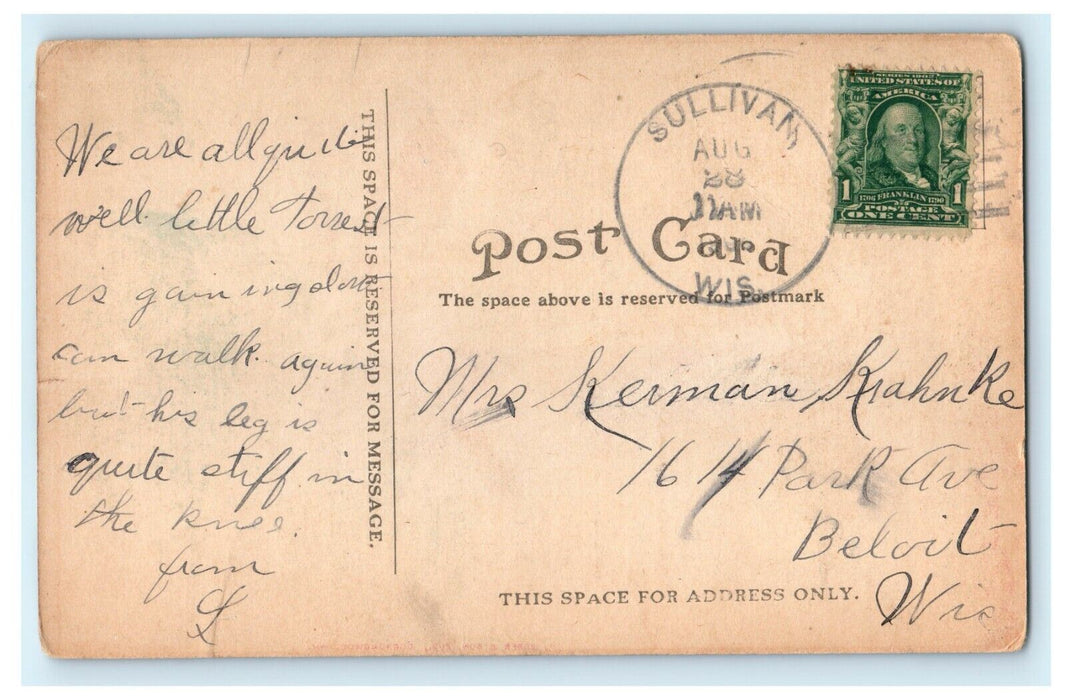 We are all quite
well. little Forrest
is gaining
can walk again
but his leg is
quite stiff in
the knee.
from
L
THIS SPACE IS RESERVED FOR MESSAGE.
SULLIVAN,
AUG
28
11AM
WIS.
SERIES 1902
UNITED STATES OF
AMERICA
1 1706 FRANKLIN 1790 1
POSTAGE
ONE CENT
Post Card
The space above is reserved for Postmark
Mrs Herman Krahnke
1614 Park Ave
Beloit
Wis
THIS SPACE FOR ADDRESS ONLY.